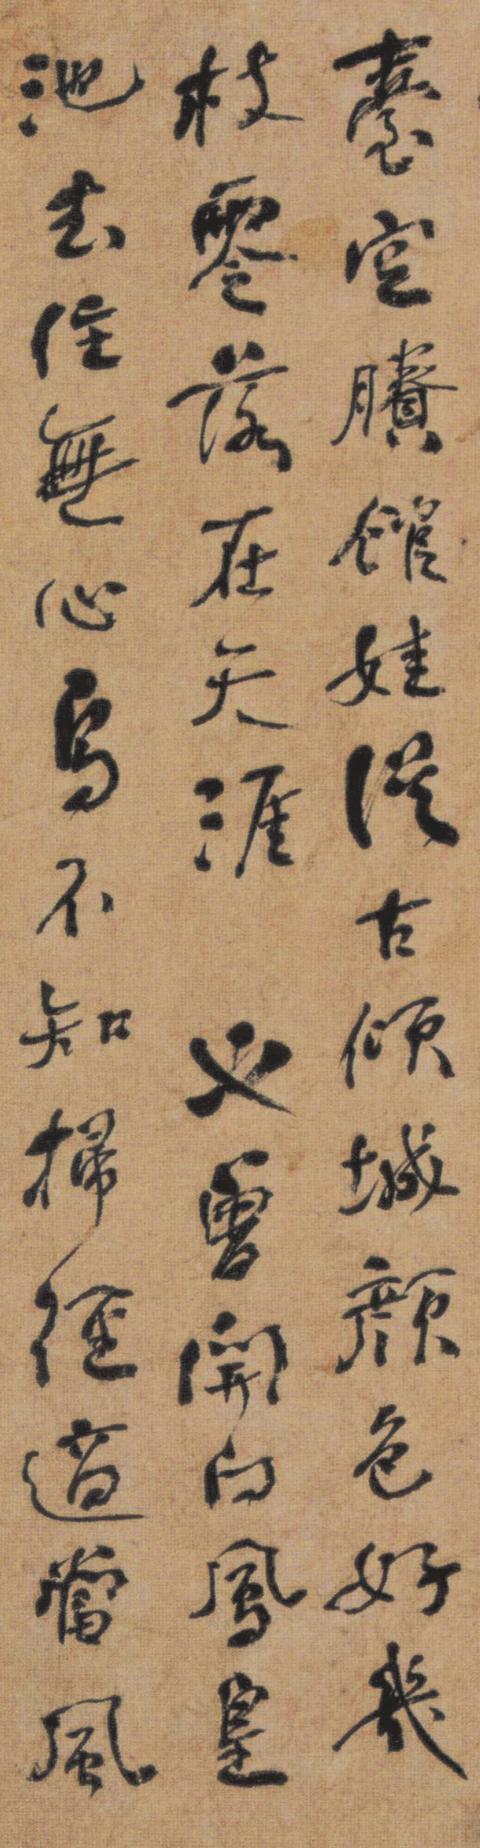 臺空賸館娃從古傾城顏色好幾
枝零落在天涯 也曾開向鳳皇
池去住無心鳥不知掃徑適當風